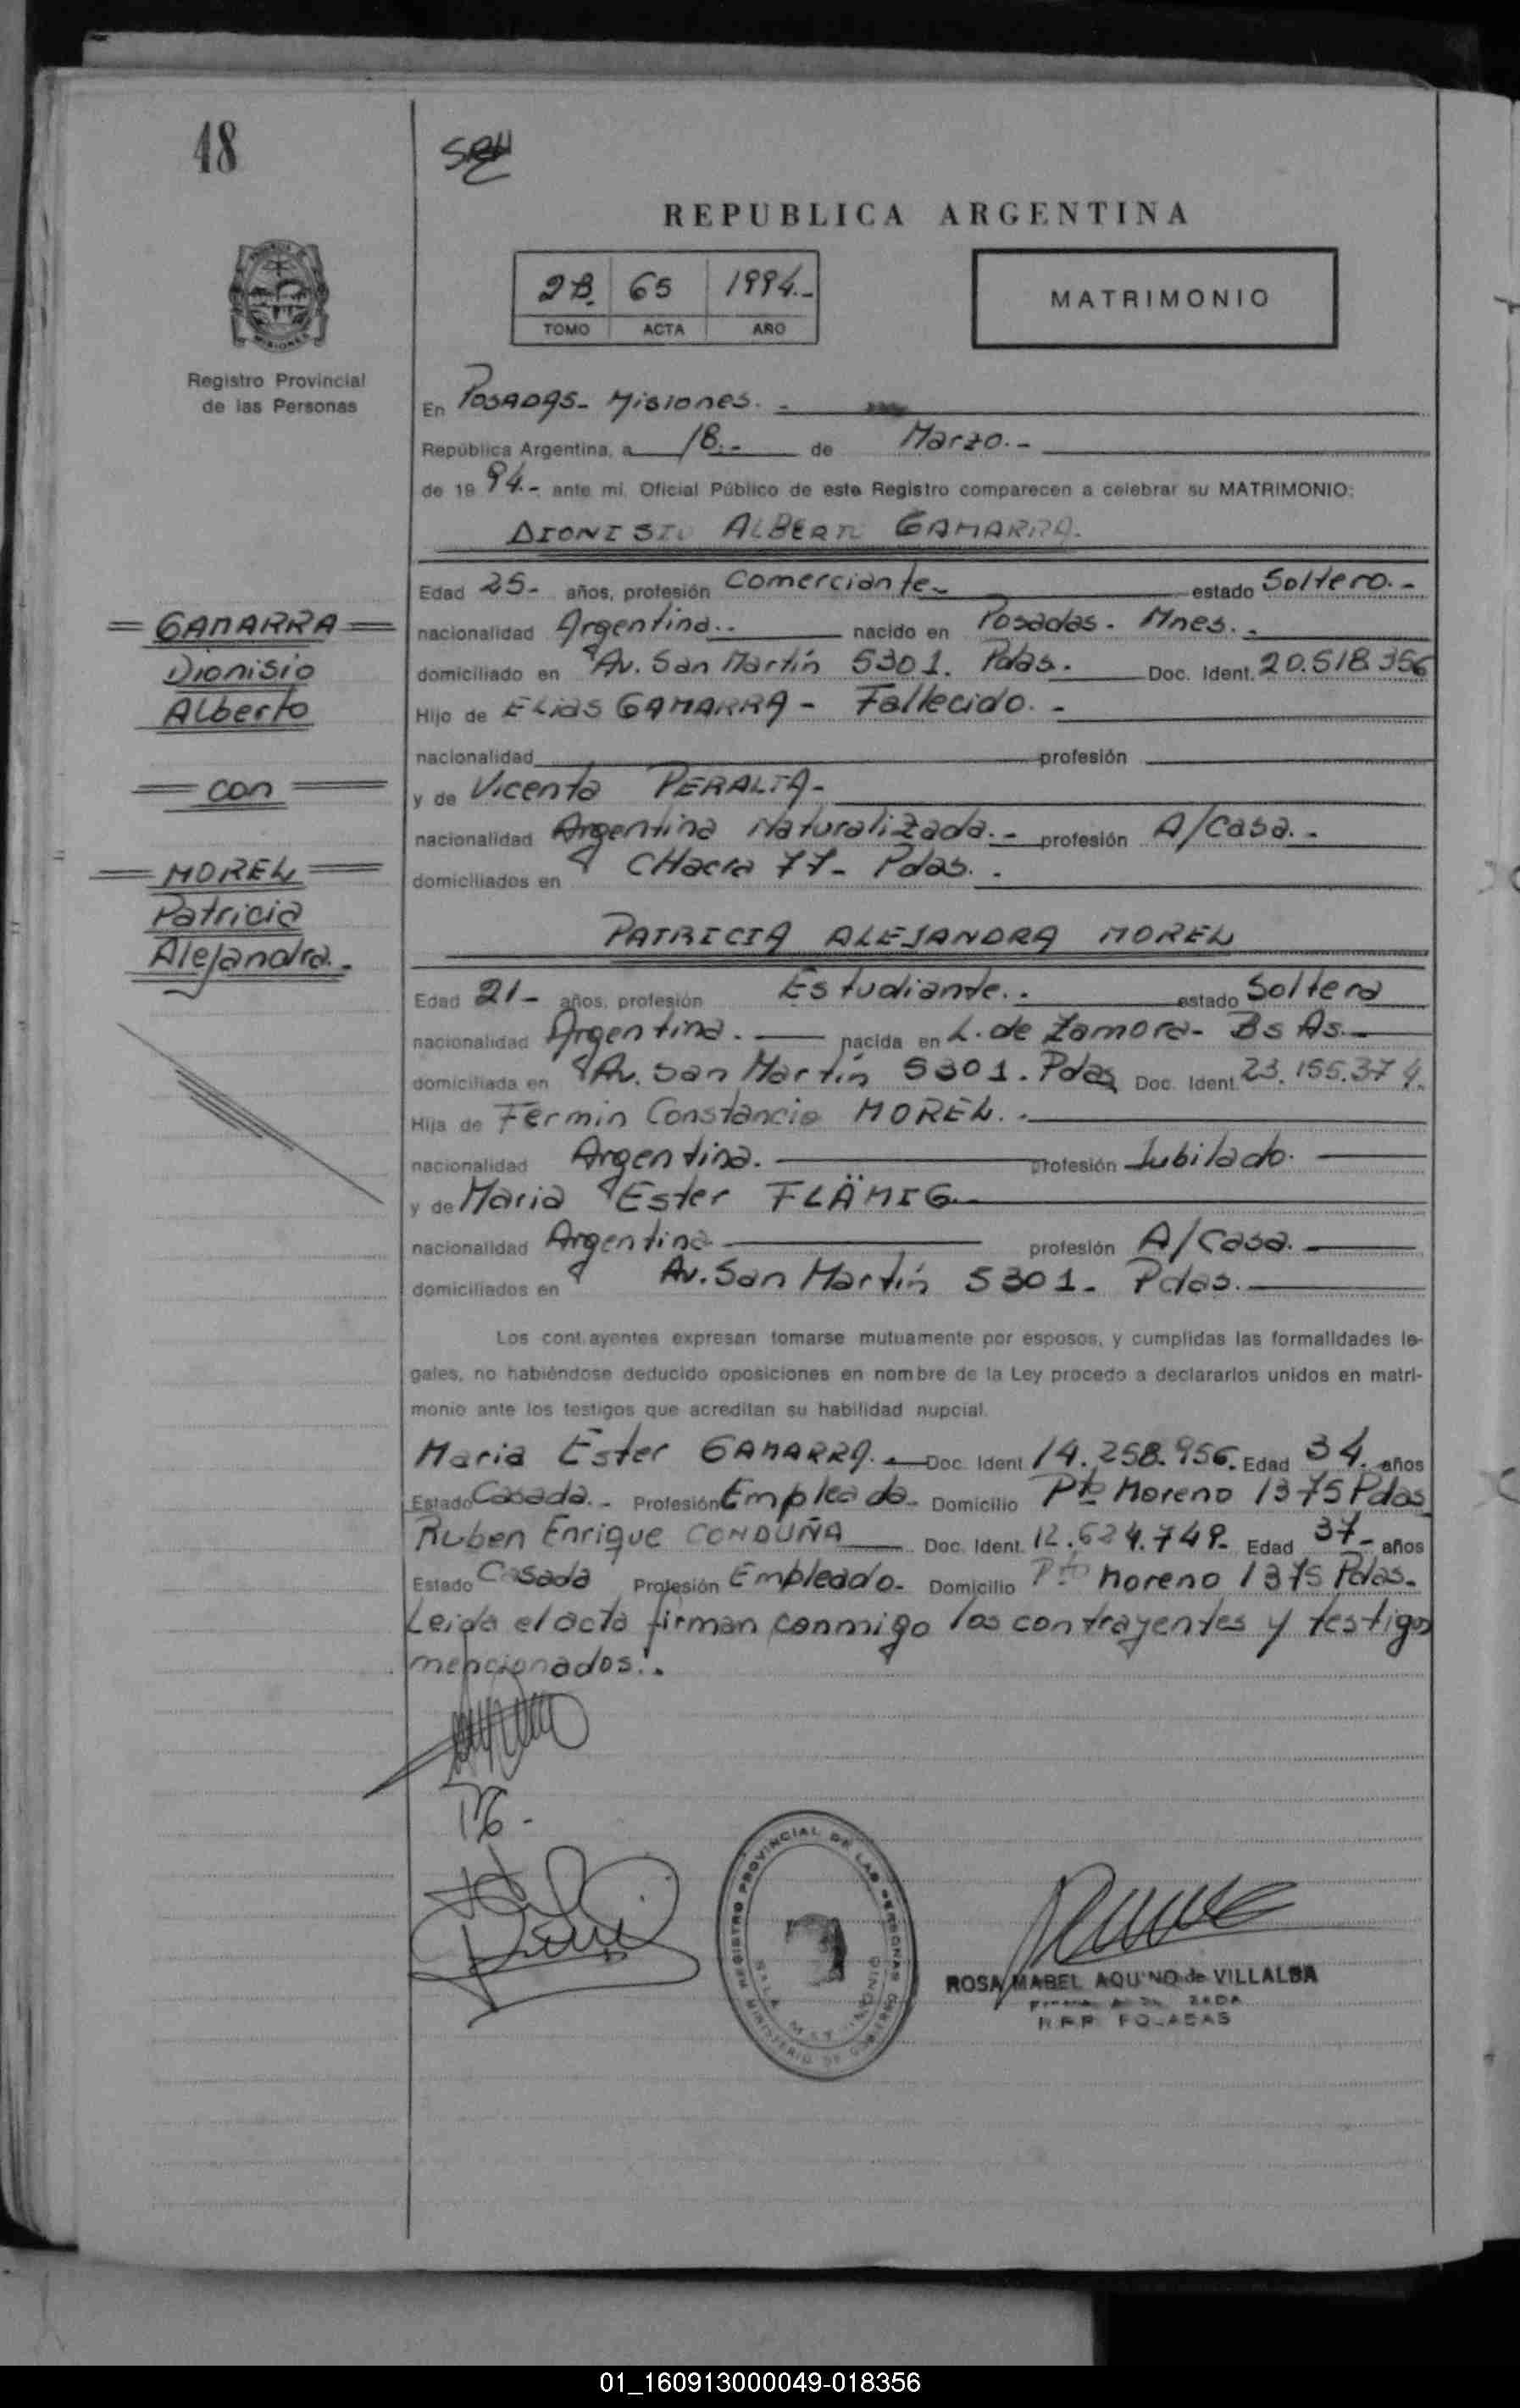 48
REPUBLICA ARGENTINA
2B. 65 1994.-
TOMO ACTA AÑO
MATRIMONIO
Registro Provincial
de las Personas
En POSADAS - Misiones. -
República Argentina, a 18.- de Marzo. -
de 19 94.- ante mi, Oficial Público de este Registro comparecen a celebrar su MATRIMONIO:
DIONISIO ALBERTO GAMARRA.
Edad 25- años, profesión Comerciante- estado Soltero. -
nacionalidad Argentina.. nacido en Posadas. Mnes. -
domiciliado en Av. San Martín 5301. Pdas. Doc. Ident. 20.518.356
Hijo de Elias GAMARRA - Fallecido. -
nacionalidad profesión
y de Vicenta PERALTA -
nacionalidad Argentina Naturalizada. - profesión A/Casa. -
domiciliados en CHacra 77- Pdas. .
PATRICIA ALEJANDRA MOREL
Edad 21- años, profesión Estudiante. . estado Soltera
nacionalidad Argentina. nacida en L. de Zamora - Bs As.
domiciliada en Av. San Martín 5301. Pdas Doc. Ident. 23.155.374.
Hija de Fermin Constancio MOREL. .
nacionalidad Argentina. profesión Jubilado.
y de Maria Ester FLÄMIG
nacionalidad Argentina profesión A/Casa.
domiciliados en Av. San Martín 5301- Pdas.
Los contrayentes expresan tomarse mutuamente por esposos, y cumplidas las formalidades le-
gales, no habiéndose deducido oposiciones en nombre de la Ley procedo a declararlos unidos en matri-
monio ante los testigos que acreditan su habilidad nupcial.
Maria Ester GAMARRA. Doc. Ident. 14.258.956. Edad 34. años
Estado Casada. - Profesión Empleada. Domicilio Pto Moreno 1375 Pdas
Ruben Enrique CONDUÑA Doc. Ident. 12.624.749- Edad 37- años
Estado Casado Profesión Empleado. Domicilio Pto Moreno 1375 Pdas.
Leida el acta firman conmigo los contrayentes y testigos
mencionados. .
= GAMARRA =
Dionisio
Alberto
= con =
= MOREL =
Patricia
Alejandra. -
REGISTRO PROVINCIAL DE LAS PERSONAS
MINISTERIO DE GOBIERNO
SALA MATRIMONIO
ROSA MABEL AQUINO de VILLALBA
R.P.P. POSADAS
01_160913000049-018356